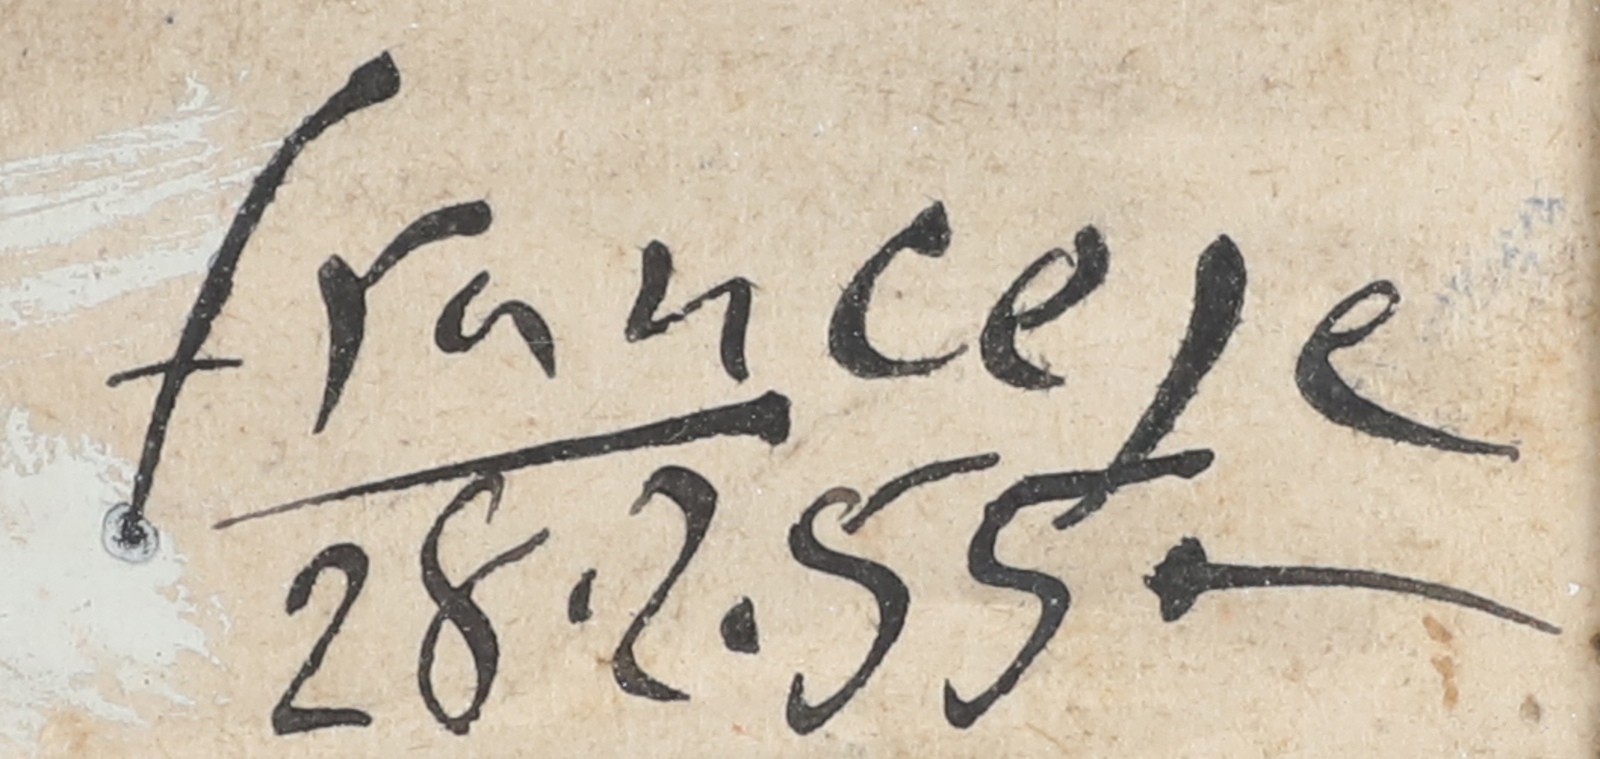 francese
28.2.55